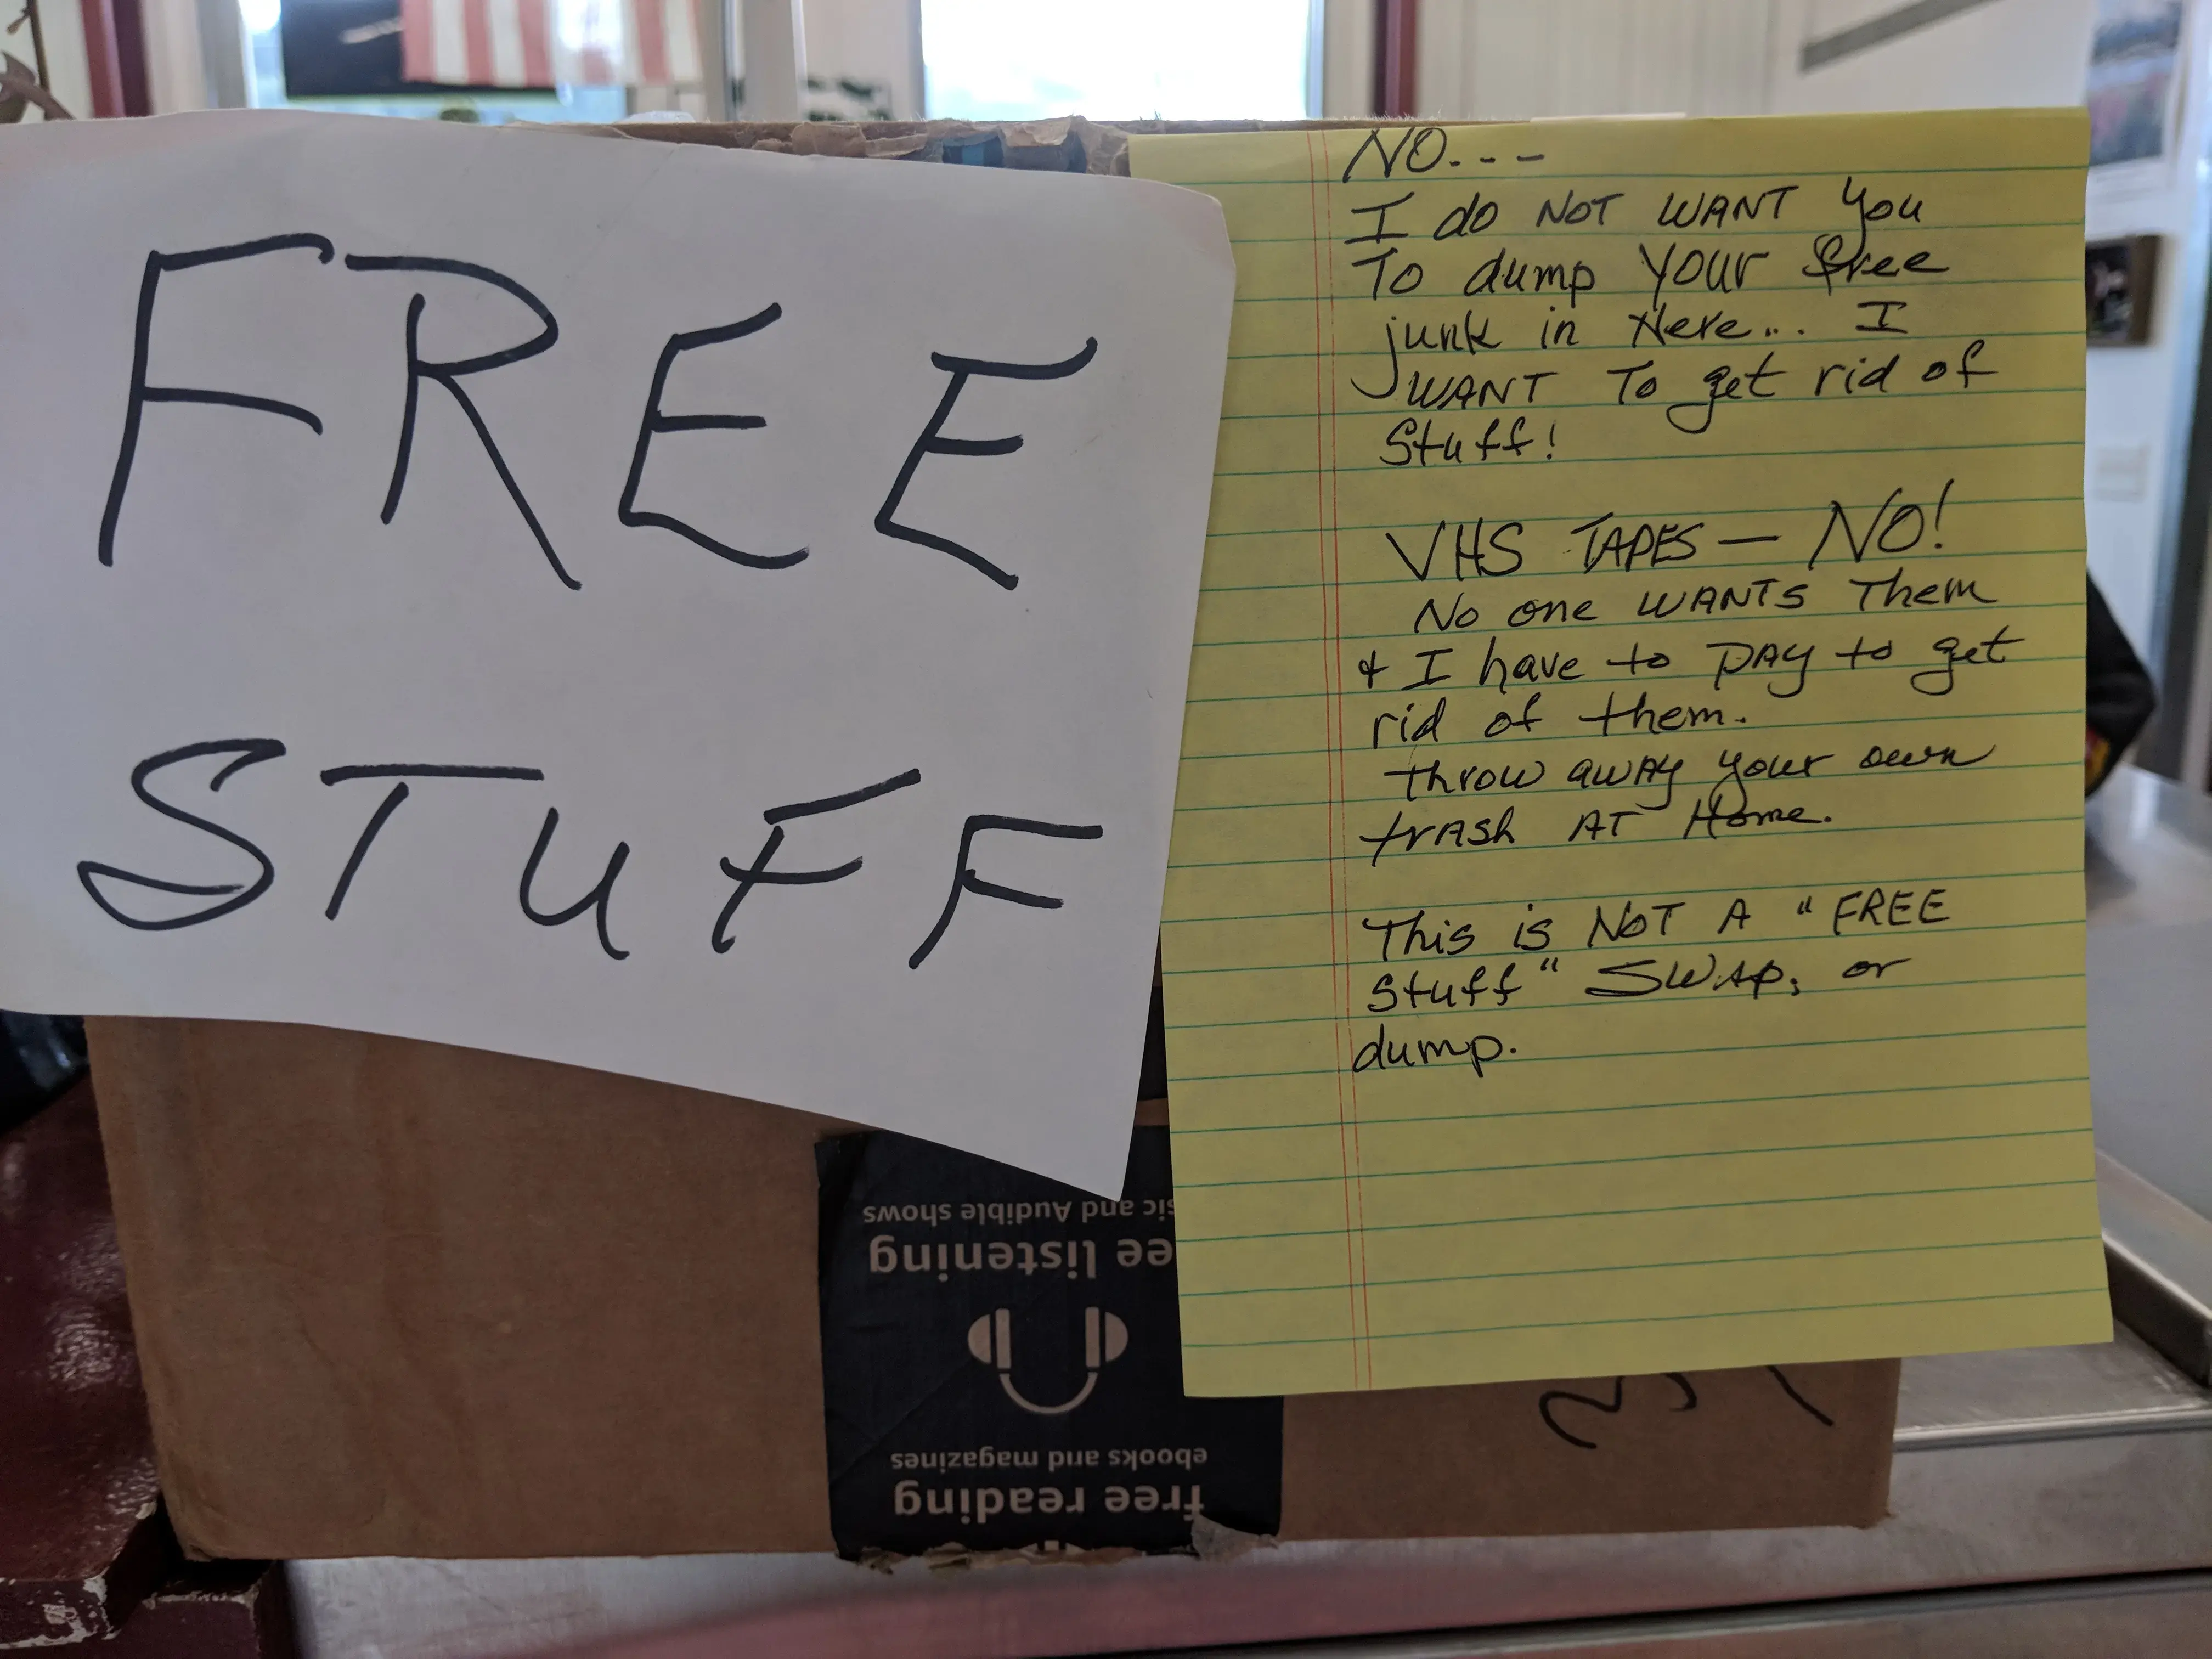 FREE
STUFF
NO---
I do NOT WANT you
To dump YOUR free
junk in Here... I
WANT To get rid of
Stuff!
VHS TAPES — NO!
No one WANTS Them
& I have to PAY to get
rid of them.
throw awAy your own
trAsh AT Home.
This is NOT A "FREE
Stuff" SWAP, or
dump.
sic and Audible shows
ee listening
ebooks and magazines
free reading